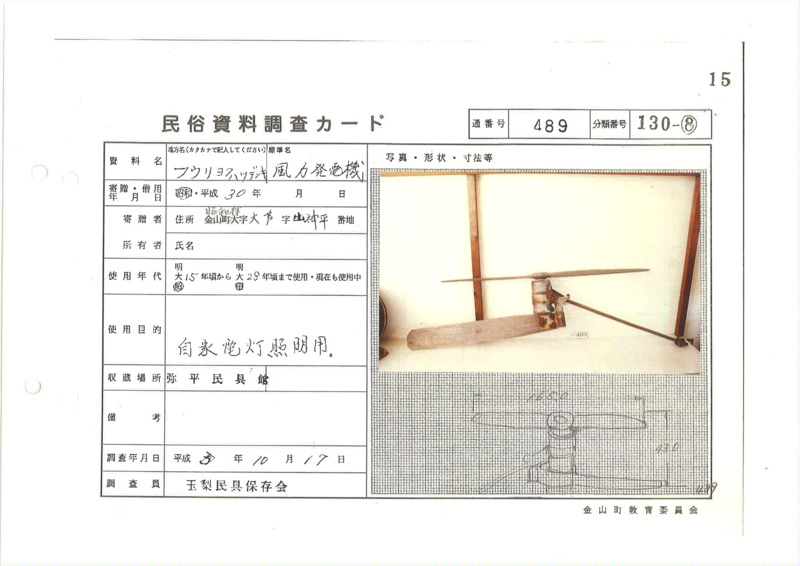 15
民俗資料調査カード
通番号 489 分類番号 130-⑧
資料名 地方名(カタカナで記入してください) フウリヨクハツデンキ 標準名 風力発電機
写真・形状・寸法等
寄贈・借用年月日 昭和・平成 30年 月 日
寄贈者 住所 昭和村 金山町大字 大芦 字 山神平 番地
所有者 氏名
使用年代 明 大 昭 15年頃から 明 大 昭 28年頃まで使用・現在も使用中
使用目的 自家電灯照明用。
収蔵場所 弥平民具館
備考
調査年月日 平成 年 10月 17日
調査員 玉梨民具保存会
1650
430
489
金山町教育委員会